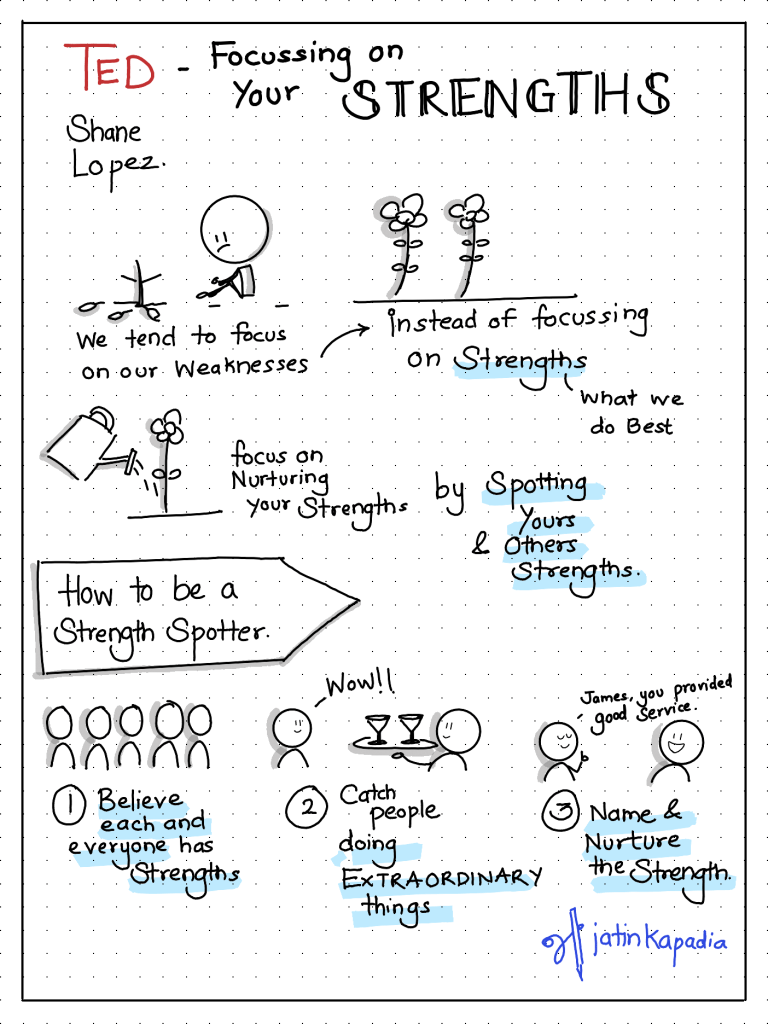 TED - Focussing on
Your STRENGTHS
Shane
Lopez.
We tend to focus
on our Weaknesses
instead of focussing
on Strengths
What we
do Best
focus on
Nurturing
Your Strengths
by Spotting
Yours
& Others
Strengths.
How to be a
Strength Spotter.
Wow!!
James, you provided
good service.
1 Believe
each and
everyone has
Strengths
2 Catch
people
doing
EXTRAORDINARY
things
3 Name &
Nurture
the Strength.
jatin kapadia